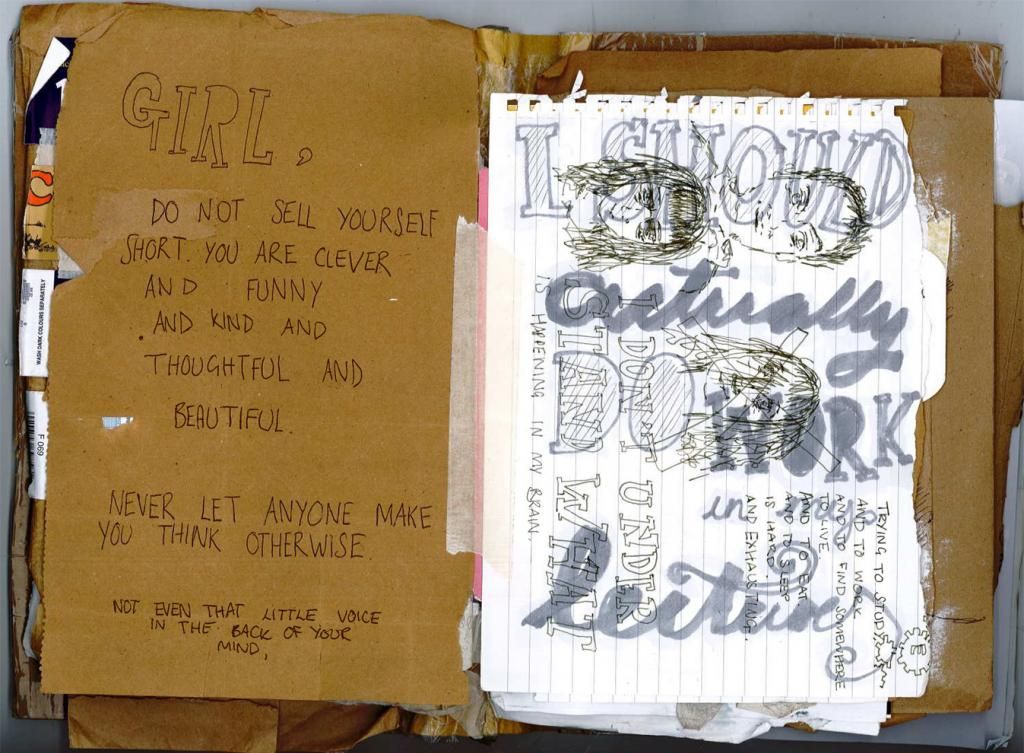 GIRL,
DO NOT SELL YOURSELF
SHORT. YOU ARE CLEVER
AND FUNNY
AND KIND AND
THOUGHTFUL AND
BEAUTIFUL.
NEVER LET ANYONE MAKE
YOU THINK OTHERWISE.
NOT EVEN THAT LITTLE VOICE
IN THE BACK OF YOUR
MIND,
WASH DARK COLOURS SEPARATELY
F 069
I SHOULD
actually
DO WORK
in my
Lecture
I DON'T UNDER
STAND WHAT
IS HAPPENING IN MY BRAIN.
TRYING TO STUDY
AND TO WORK
AND TO FIND SOMEWHERE
TO LIVE
AND TO EAT
AND TO SLEEP
IS HARD.
AND EXHAUSTING.
E